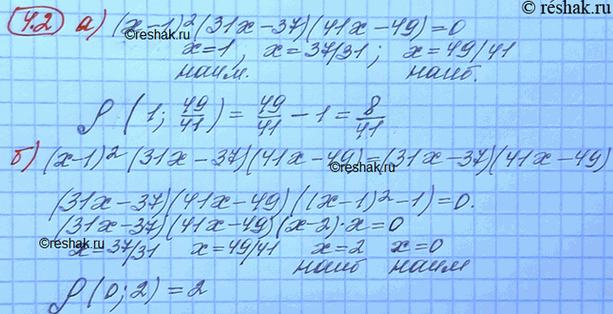 © reshak.ru
4.2 а) (x-1)²(31x-37)(41x-49)=0
©reshak.ru
x=1, x=37/31; x=49/41
наим. наиб.
ρ(1; 49/41) = 49/41 - 1 = 8/41
б) (x-1)²(31x-37)(41x-49)=(31x-37)(41x-49)
©reshak.ru
(31x-37)(41x-49)((x-1)²-1)=0.
(31x-37)(41x-49)(x-2)·x=0
©reshak.ru
x=37/31 x=49/41 x=2 x=0
наиб наим
ρ(0;2)=2